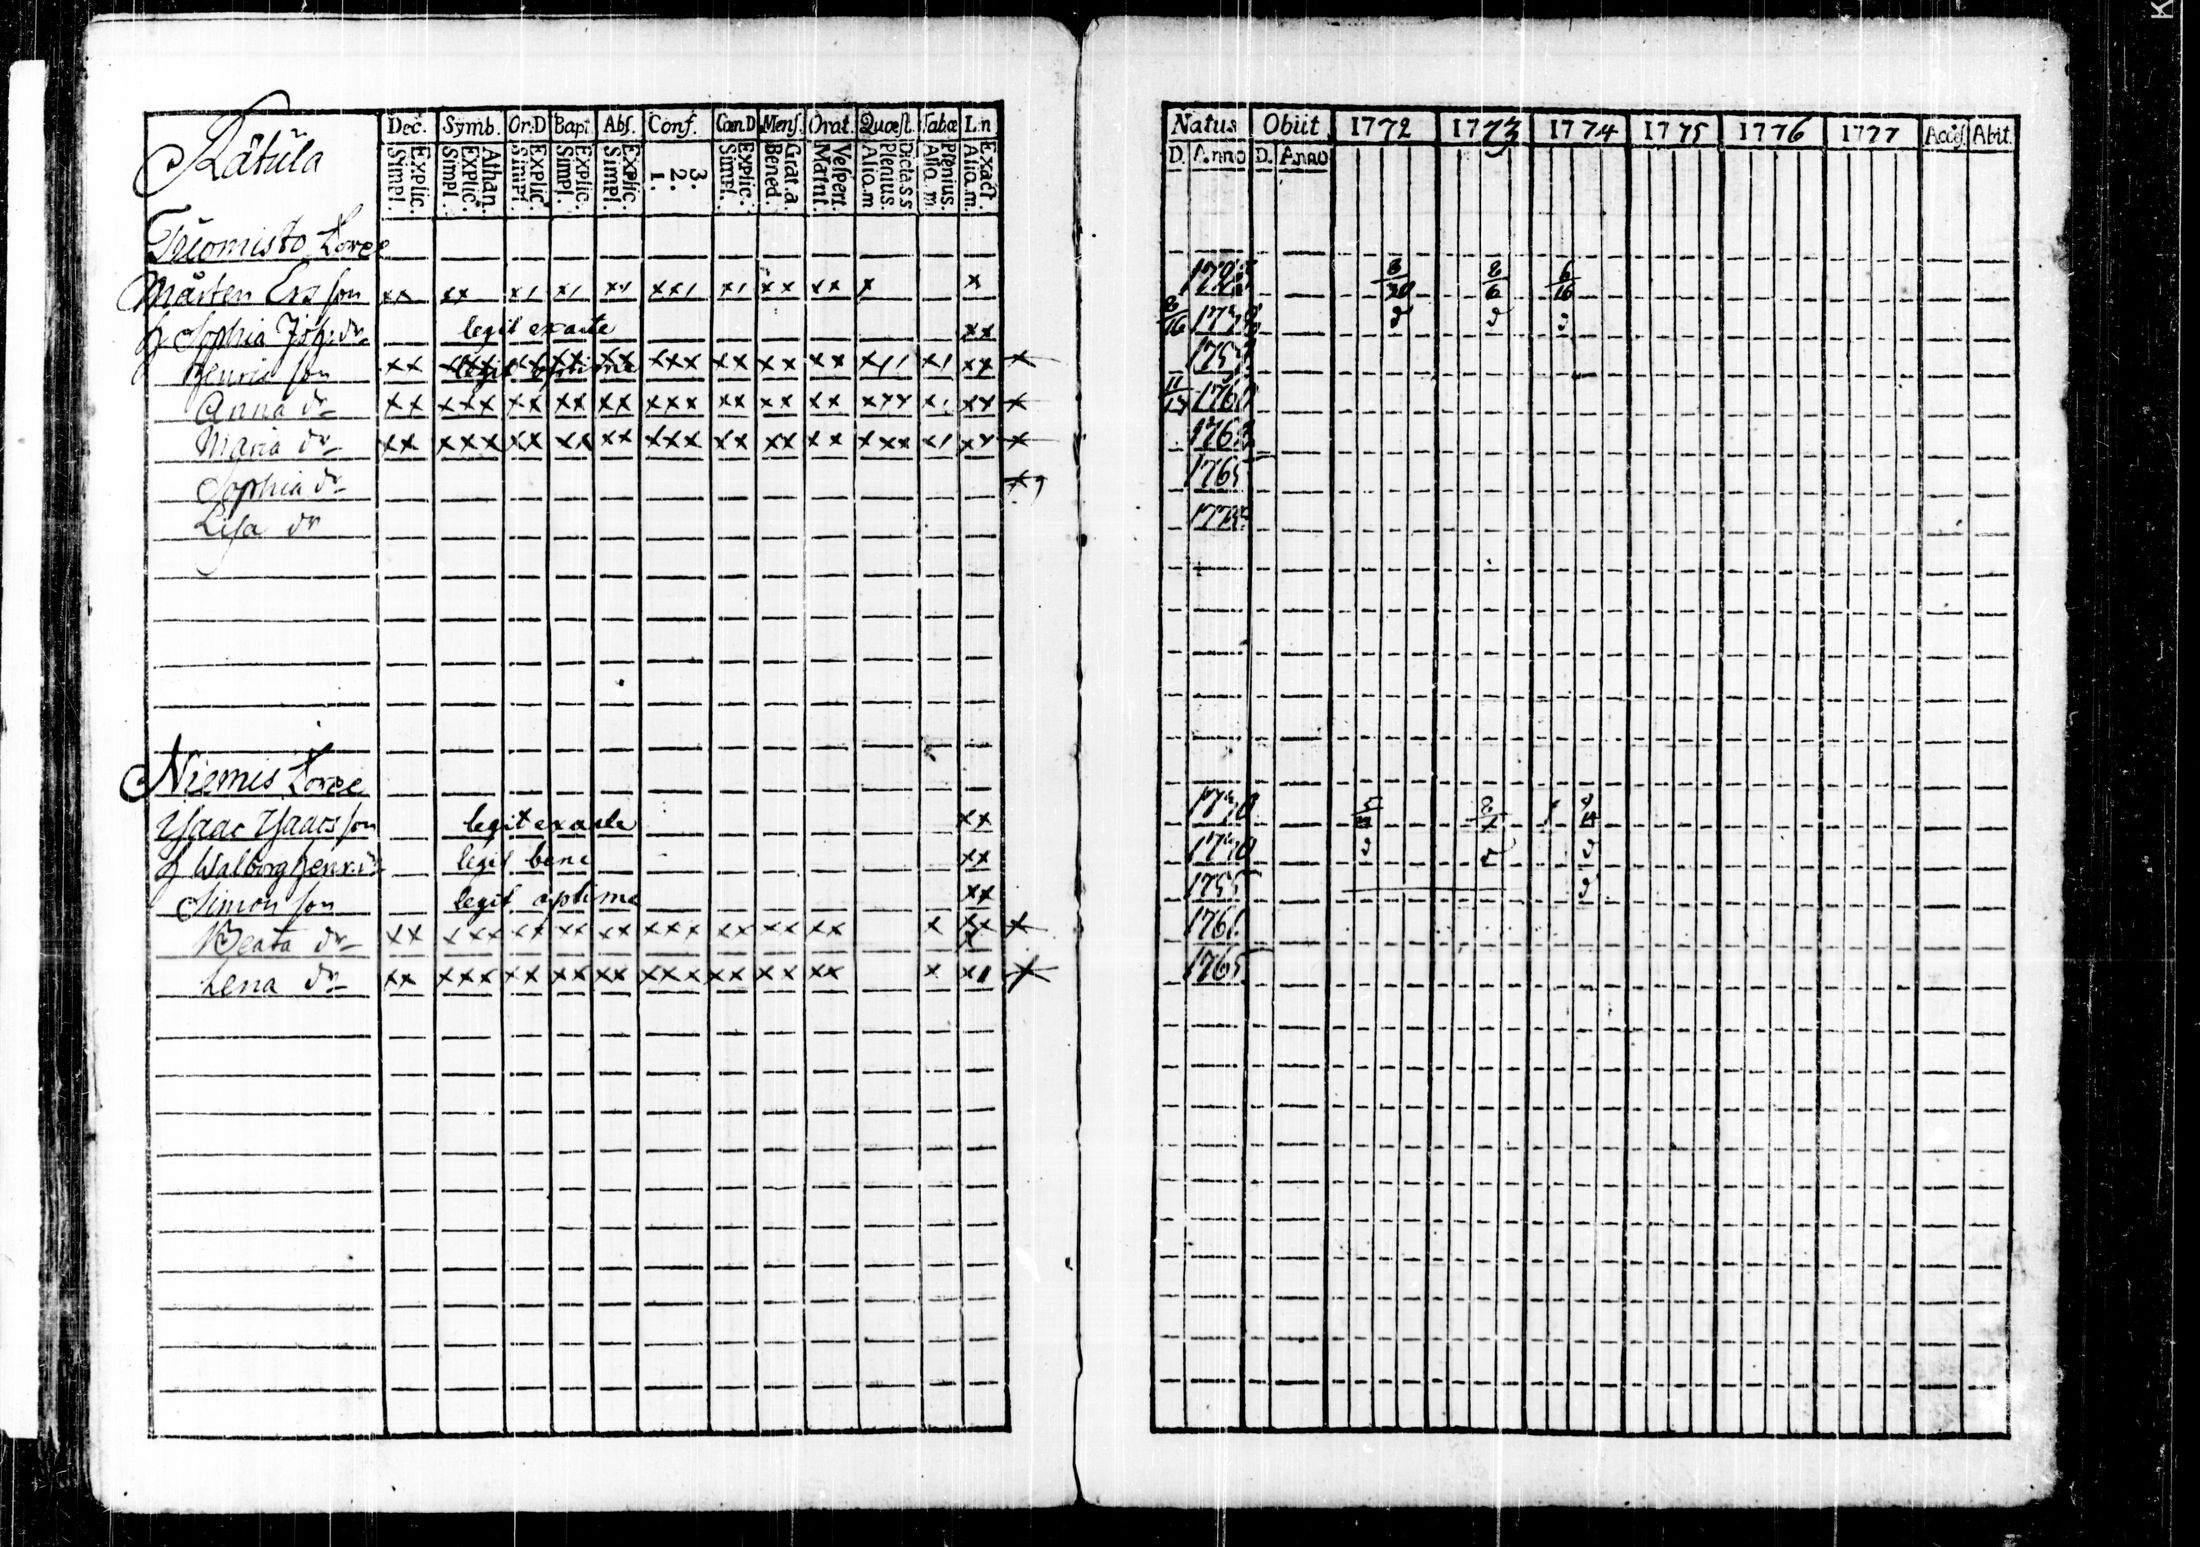 Råtula
Dec. Symb. Or:D Bapt Abs. Conf. Cœn.D Mens. Orat. Quæst. Tabæ L.n
Explic. Simpl. Athan. Explic. Simpl. Explic. Simpl. Explic. Simpl. Explic. Simpl. 3. 2. 1. Explic. Simpl. Grat.a. Bened. Vespert. Matut. Dicta.s.s Plenius. Aliq.m Plenius. Aliq.m. Exact. Aliq.m.
Natus Obiit 1772 1773 1774 1775 1776 1777 Acces. Abit.
D. Anno D. Anno
Tuomisto Torpe
Mårten Ers son xx xx x/ x/ x/ xx/ x/ xx xx x x 8/30 8/6 6/16
H Sophia dr legit exacte xx 8/16
Henric son xx xxx xx xx xx xxx xx xx xx x// x/ xx x
legit optime
Anna dr xx xxx xx xx xx xxx xx xx xx xxx x/ xx x
Maria dr xx xxx xx xx xx xxx xx xx xx xxx x/ xx x 1763
Sophia dr x 1765
Lisa dr
Niemis Torpe
Ysaac Ysaacs son legit exacte xx 1730
H Walborg Henr. dr legit bene xx 1730
Simon son legit optime xx 1755
Beata dr xx xxx xx xx xx xxx xx xx xx x xx x 1761
Lena dr xx xxx xx xx xx xxx xx xx xx x x/ x 1765